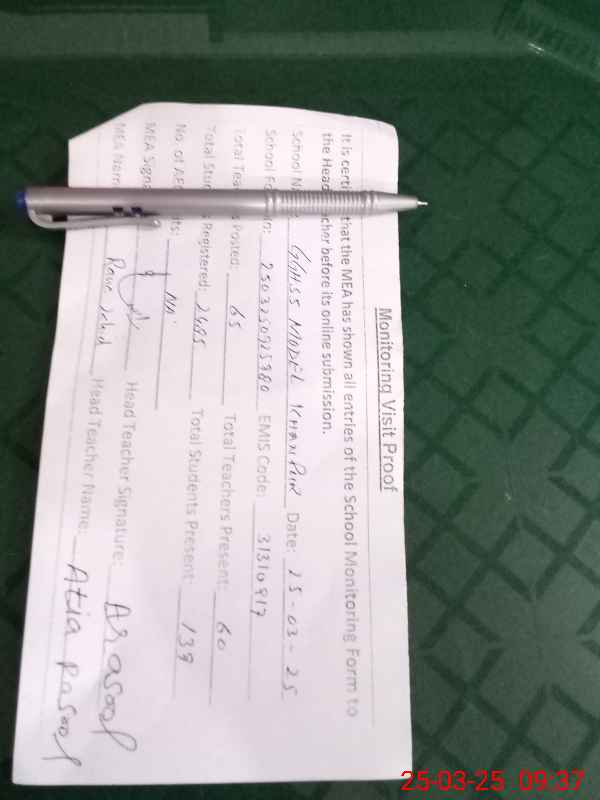 Monitoring Visit Proof
It is certi that the MEA has shown all entries of the School Monitoring Form to
the Head cher before its online submission.
School N GGHSS MODEL KHANPUR Date: 25-03-25
School Fo No: 2503250925780 EMIS Code: 31310917
Total Tea s Posted: 65 Total Teachers Present: 60
Total Stud s Registered: 2685 Total Students Present: 139
No. of AEO its: NA
MEA Signa Head Teacher Signature: Arasool
MEA Nam Head Teacher Name: Atia Rasool
25-03-25 09:37